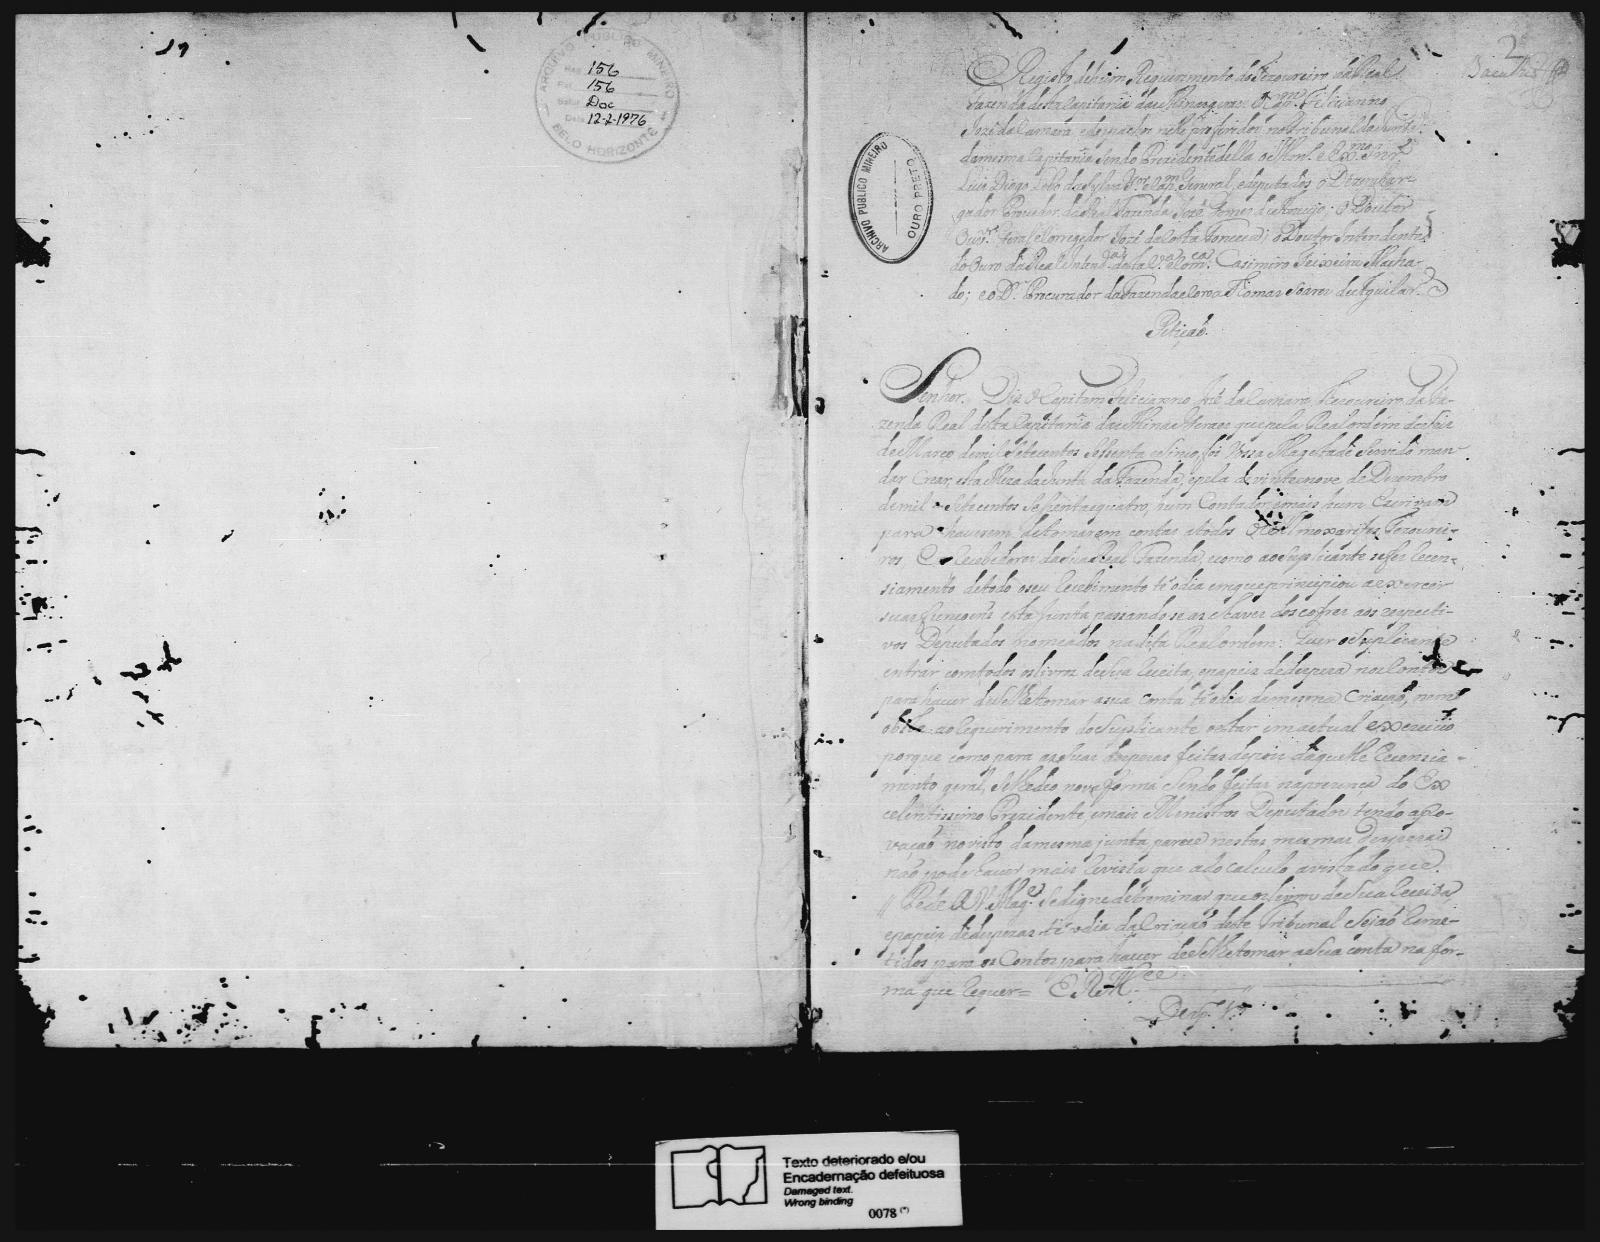 ARQUIVO PUBLICO MINEIRO
156
156
Doc
Data 12-2-1976
BELO HORIZONTE
2
ARCHIVO PUBLICO MINEIRO
OURO PRETO
Registo de hum Requerimento do Tezoureiro da Real
Fazenda desta Capitania das Minas geraes o Capm. Feliciano
Jozé da Camara, e despachos nelle proferidos no Tribunal da Junta
da mesma Capitania sendo Prezidente della o Illmo. e Exmo. Snr.
Luis Diogo Lobo da Sylva Gor. e Capm. General, e deputados o Dezembar-
gador Provedor da Real Fazenda Jozé Gomes de Araujo; o Doutor
Ouvor. Geral e Corregedor Jozé da Costa Fonceca; o Doutor Intendente
do Ouro da Real Intenda. desta Va. e Comca. Casimiro Teixeira Macha-
do; e o Dr. Procurador da Fazenda e Coroa Thomas Soares de Aguilar.
Petição.
Senhor. Diz o Capitam Feliciano Jozé da Camara Tezoureiro da Fa-
zenda Real desta Capitania das Minas Geraes que pela Real ordem de seis
de Março de mil setecentos sessenta e sinco, foi Vossa Magestade servido man-
dar crear esta Meza da Junta da Fazenda, e pela de vinte e nove de Dezembro
de mil e setecentos sessenta e quatro, hum Contador e mais hum Escrivam
para haverem de tomarem contas a todos os Almoxarifes, Tezourei-
ros, e Recebedores da sua Real Fazenda, e como ao suplicante se fes Recen-
siamento de todo o seu Recebimento té o dia em que principiou a exercer
suas funçoens esta junta passando-se as chaves dos cofres aos respecti-
vos Deputados nomeados na dita Real ordem: Quer o Suplicante
entrar com todos os livros de sua Receita, e papeis de despeza nos Contos
para haver de se lhe tomar a sua conta té o dia da mesma Criação, nem
obsta ao Requerimento do Suplicante o estar em actual exercicio
porque como para as suas despezas feitas depois daquelle Recensia-
mento geral, se lhe deo nova forma sendo feitas na prezença do Ex
celentissimo Prezidente e mais Ministros Deputados tendo apro-
vação no visto da mesma junta, parece nestas mesmas Despezas
não pode haver mais Revista que a do calculo avista do que.
// Pede A V. Mage. se digne detreminar que os livros de sua Receita,
e papeis de despezas té o dia da Criação deste Tribunal sejão Reme-
tidos para os Contos para haver de se lhe tomar a sua conta na for-
ma que Requer = E. R. Mce.